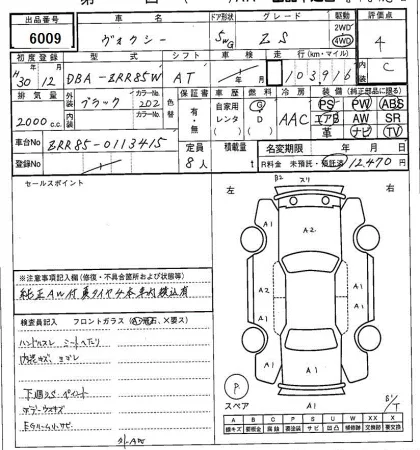 出品番号 車名 ドア形状 グレード 駆動 評価点
6009 ヴォクシー 5WG ZS 2WD 4WD 4
初度登録 型式 シフト 車検 走行(km・マイル) 内装
H30 12 DBA-ZRR85W AT 年 月 103,916 C
排気量 外装 色 カラーNo. 色替 保証書 車歴 燃料 冷房 装備(純正部品に限る)
2000c.c. ブラック 202 有・無 自家用 レンタ G D AAC PS PW ABS
エアB AW SR
内装 色 カラーNo. 革 ナビ TV
車台No ZRR85-0113415 定員 積量 名変期限 年 月 日
登録No 8人 t R料金 未預託・預託済 12,470円
セールスポイント
左 右
B2 スリ
A1 A2 A1
A1 A1
A2 A1
A1 A1
※注意事項記入欄(修復・不具合箇所および状態等)
純正AW付夏タイヤ4本車内積込有
検査員記入 フロントガラス(A:飛石、X:要ス)
ハンドルスレ シートヘタリ
内装キズ ヨゴレ
下廻りS.ペイント
P
スペア
A1
B1
A B C P S U W X XX X
線キズ 要板金 腐蝕 要塗装 サビ 凹凸 補修跡 交換跡 要交換